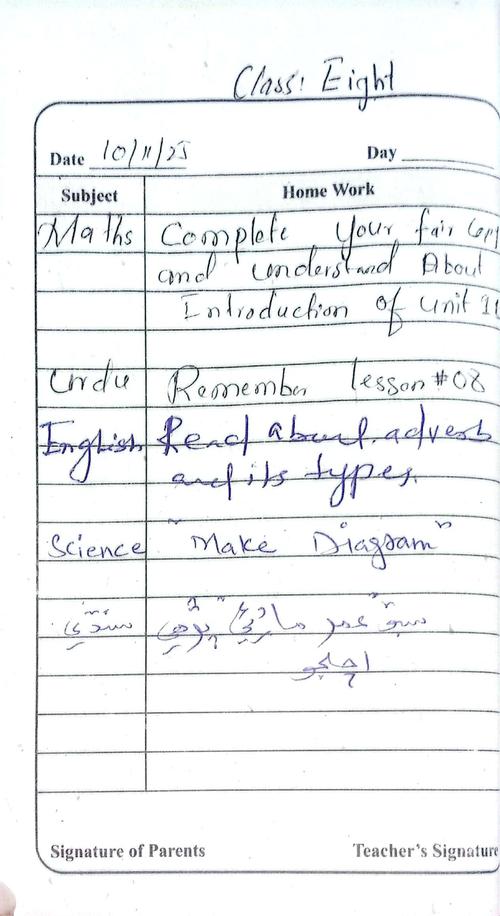 Class: Eight
Date 10/11/25 Day
Subject Home Work
Maths Complete your fair Copy
and understand About
Introduction of unit 11
Urdu Remember lesson #08
English Read about adverb
and its types.
Science "Make Diagram"
سنڌي سبق عمر مارئي پڙهي
اچجو
Signature of Parents Teacher's Signature